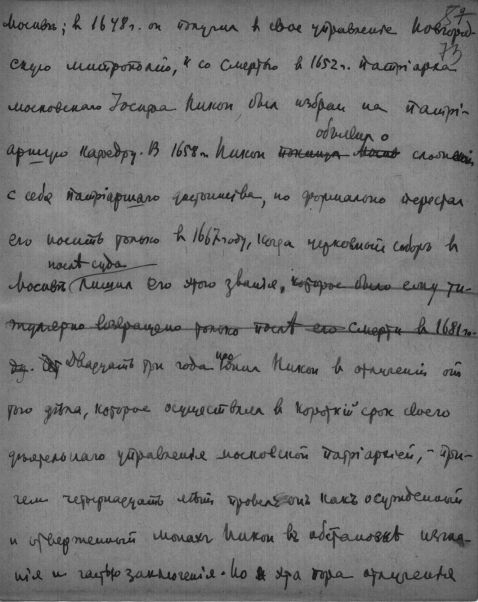 57
73
Москвѣ; въ 1648 г. он получил в свое управленіе Новгород-
скую митрополію, и со смертью в 1652 г. патріарха
московскаго Іосифа Никон был избран на патрі-
аршую кафедру. В 1658 г. Никон объявил о сложеніи
с себя патріаршаго достоинства, но формально перестал
его носить только в 1667 году, когда церковный соборъ в
Москвѣ после суда лишил его этого званія, которое было ему ти-
тулярно возвращено только послѣ его смерти в 1681 г.
Двадцать три года прожил Никон в отлученіи от
того дѣла, которое осуществлял в короткій срок своего
дѣятельнаго управленія московской патріархіей, - при-
чем четырнадцать лѣт провел он какъ осужденный
и отверженный монах Никон въ обстановкѣ изгна-
нія и частью заключенія. Но эта пора отлученія